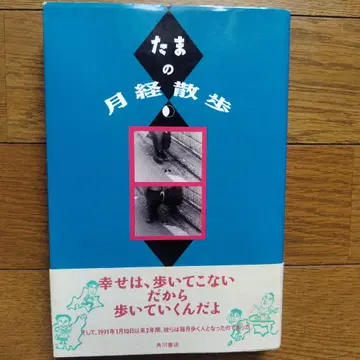 たま
の
月経散歩
幸せは、歩いてこない
だから
歩いていくんだよ
そして、1991年1月10日以来2年間、彼らは毎月歩く人となったのであった
角川書店